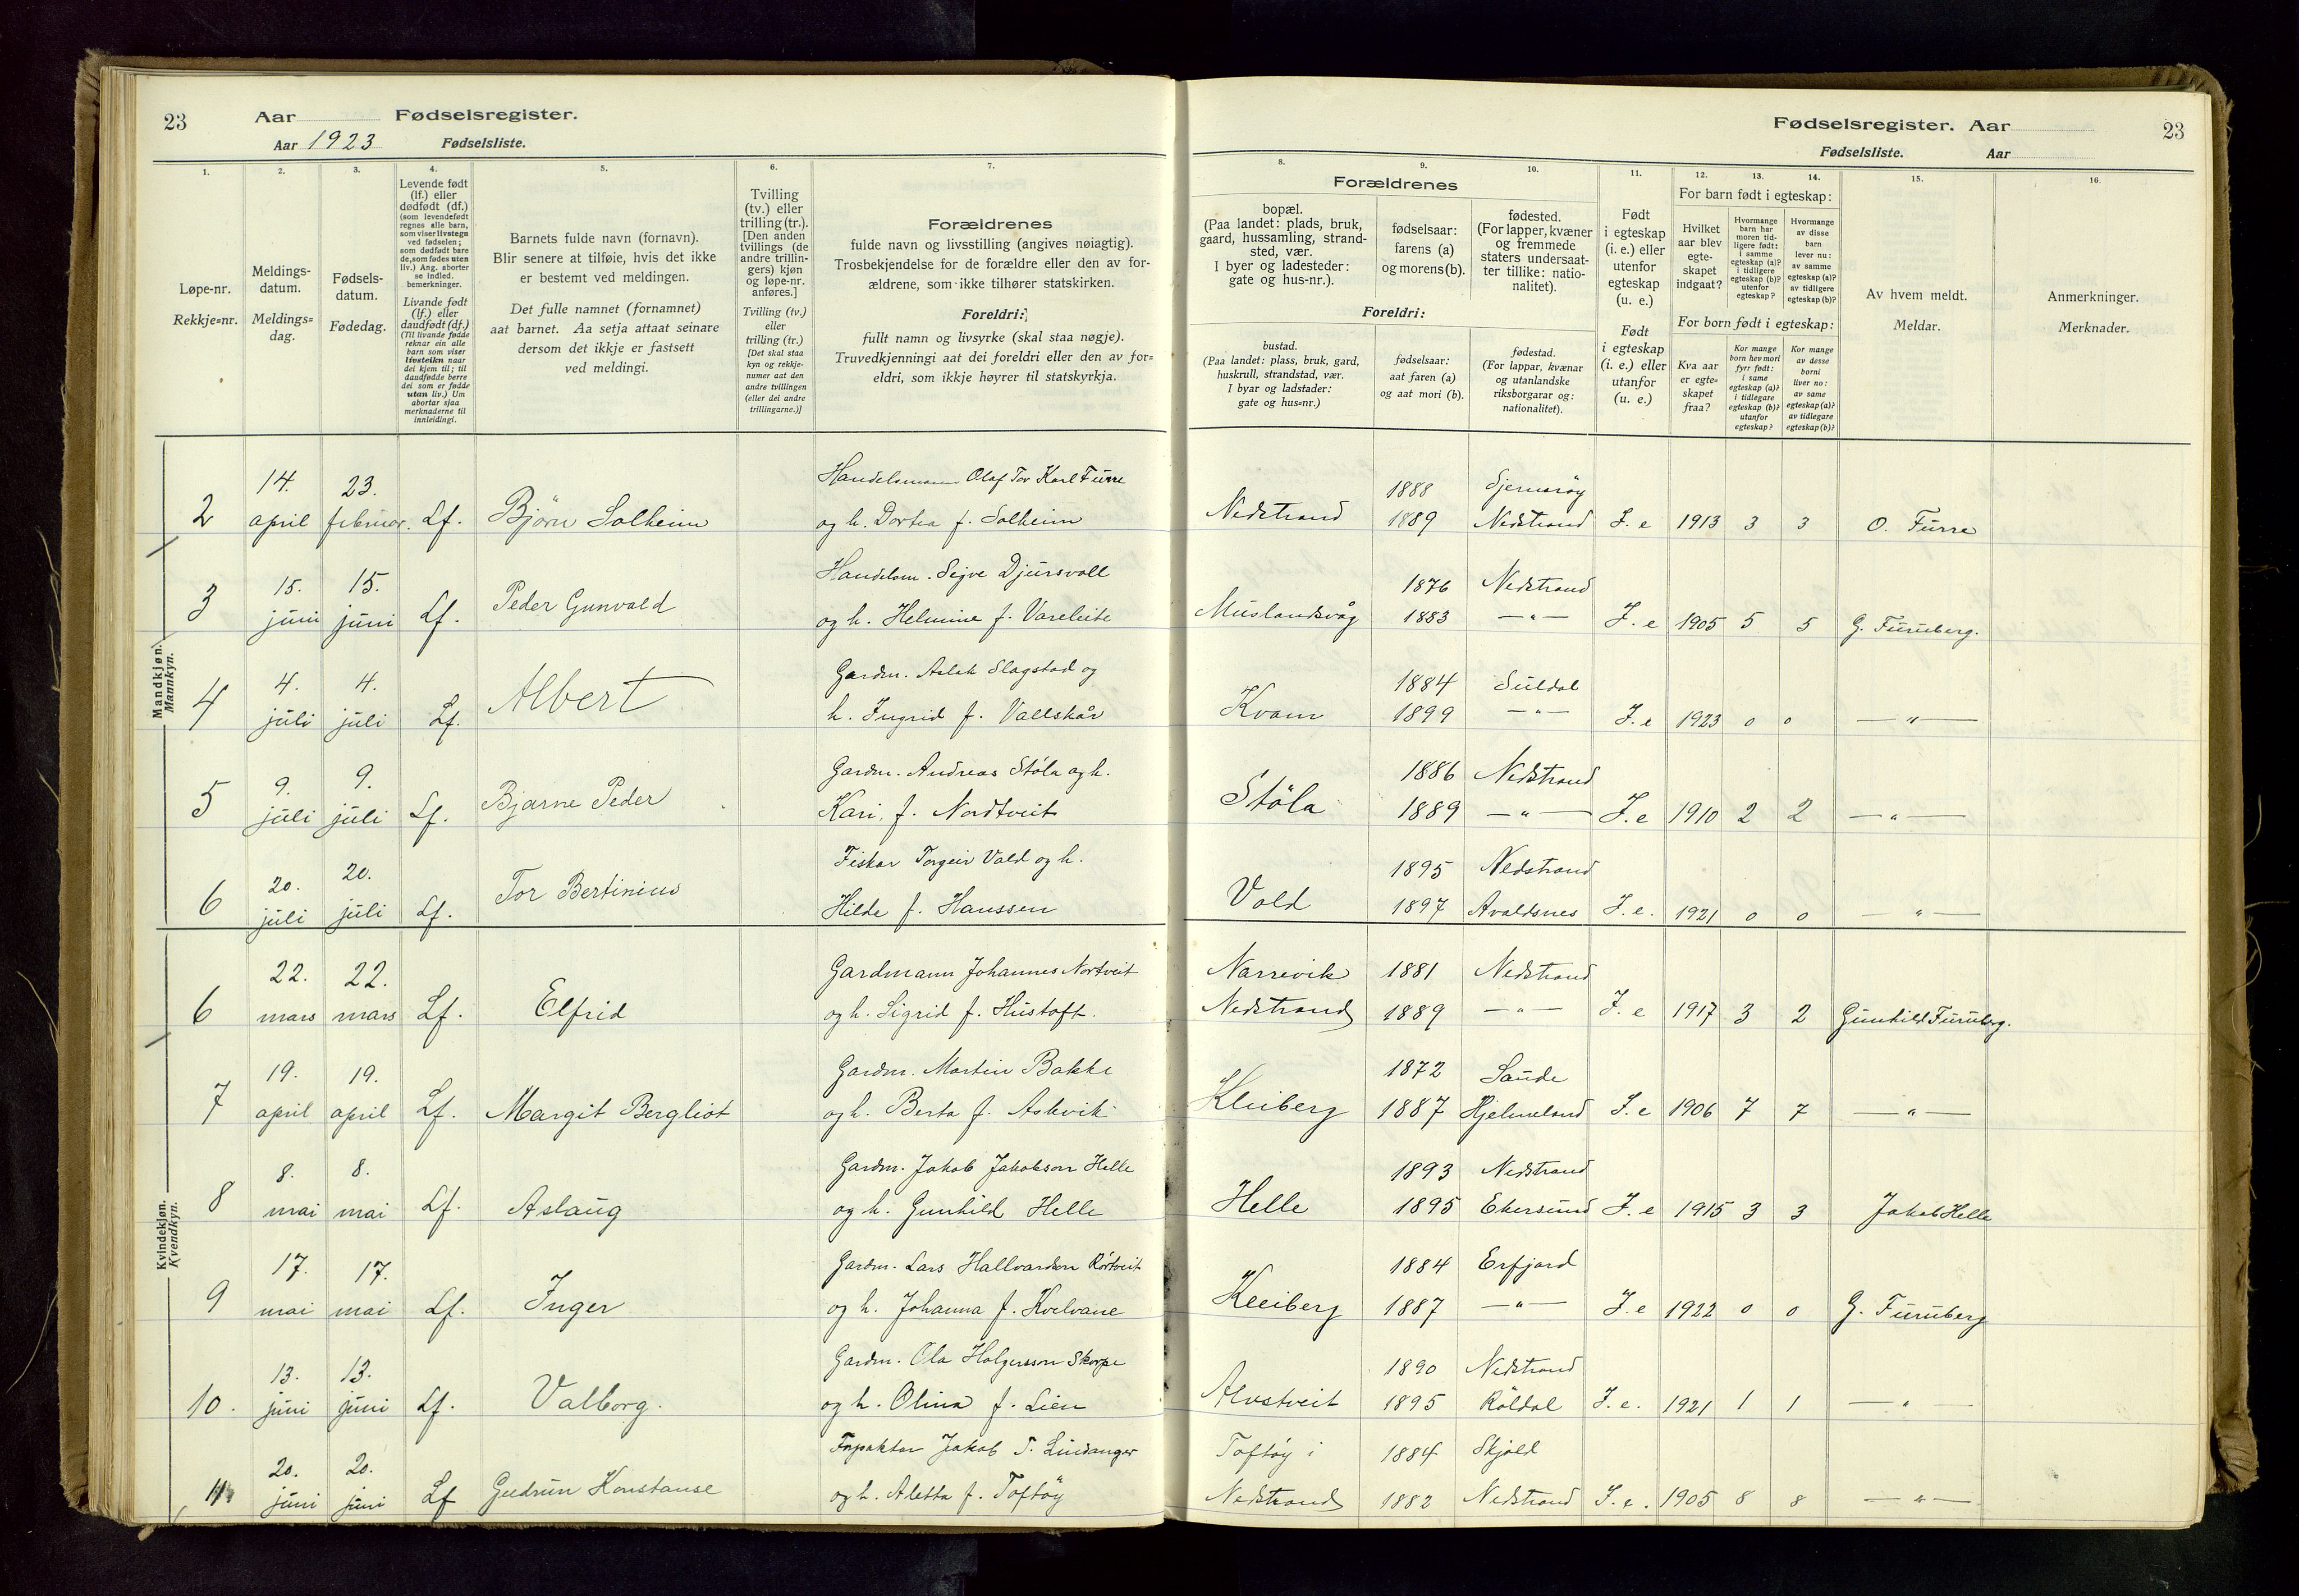 23
Aar
Fødselsregister.
Aar 1923
Fødselsliste.
Fødselsregister. Aar
23
Fødselsliste. Aar
1.
Løpe-nr.
Rekkje=nr.
2.
Meldings-
datum.
Meldings=
dag.
3.
Fødsels-
datum.
Fødedag.
4.
Levende født
(lf.) eller
dødfødt (df.)
(som levendefødt
regnes alle barn,
som viser livstegn
ved fødselen;
som dødfødt bare
de, som fødes uten
liv.) Ang. aborter
se indled.
bemerkninger.
Livande født
(lf.) eller
daudfødt (df.)
(Til livande fødde
reknar ein alle
barn som viser
livsteikn naar
dei kjem til; til
daudfødde berre
dei som er fødde
utan liv.) Um
abortar sjaa
merknaderne til
innleidingi.
5.
Barnets fulde navn (fornavn).
Blir senere at tilføie, hvis det ikke
er bestemt ved meldingen.
Det fulle namnet (fornamnet)
aat barnet. Aa setja attaat seinare
dersom det ikkje er fastsett
ved meldingi.
6.
Tvilling
(tv.) eller
trilling (tr.).
[Den anden
tvillings (de
andre trillin-
gers) kjøn
og løpe-nr.
anføres.]
Tvilling (tv.)
eller
trilling (tr.)
[Det skal staa
kyn og rekkje-
numer aat den
andre tvillingen
(eller dei andre
trillingarne.)]
7.
Forældrenes
fulde navn og livsstilling (angives nøiagtig).
Trosbekjendelse for de forældre eller den av for-
ældrene, som ikke tilhører statskirken.
Foreldri:
fullt namn og livsyrke (skal staa nøgje).
Truvedkjenningi aat dei foreldri eller den av for=
eldri, som ikkje høyrer til statskyrkja.
Forældrenes
8.
bopæl.
(Paa landet: plads, bruk,
gaard, hussamling, strand-
sted, vær.
I byer og ladesteder:
gate og hus-nr.).
9.
fødselsaar:
farens (a)
og morens (b).
10.
fødested.
(For lapper, kvæner
og fremmede
staters undersaat-
ter tillike: natio-
nalitet).
Foreldri:
bustad.
(Paa landet: plass, bruk, gard,
huskrull, strandstad, vær.
I byar og ladstader:
gate og hus=nr.)
fødselsaar:
aat faren (a)
og aat mori (b).
fødestad.
(For lappar, kvænar
og utanlandske
riksborgarar og:
nationalitet).
11.
Født
i egteskap
(i. e.) eller
utenfor
egteskap
(u. e.)
Født
i egteskap
(i. e.) eller
utanfor
(u. e.)
For barn født i egteskap:
12.
Hvilket
aar blev
egte-
skapet
indgaat?
13.
Hvormange
barn har
moren tid-
ligere født:
i samme
egteskap (a)?
i tidligere
egteskap (b)?
utenfor
egteskap?
14.
Hvormange
av disse
barn
lever nu:
av samme
egteskap (a)?
av tidligere
egteskap (b)?
For born født i egteskap:
Kva aar
er egte=
skapet
fraa?
Kor mange
born hev mori
fyrr født:
i same
egteskap (a)?
i tidlegare
egteskap (b)?
utanfor
egteskap?
Kor mange
av desse
borni
liver no:
av same
egteskap (a)?
av tidlegare
egteskap (b)?
15.
Av hvem meldt.
Meldar.
16.
Anmerkninger.
Merknader.
Mandkjøn.
Mannkyn.
14. 23. Handelsmann Olaf Tor Karl Furre 1888 Sjernarøy
2 april februar. Lf. Bjørn Solheim og h. Dortea f. Solheim Nedstrand 1889 Nedstrand I. e 1913 3 3 O. Furre
15. 15. Handelsm. Sejve Djursvoll 1876 Nedstrand
3 juni juni Lf. Peder Gunvald og h. Helmine f. Vareleite Muslandsvåg 1883 — " — I. e 1905 5 5 G. Furuberg.
4. 4. Gardm. Aslak Slagstad og 1884 Suldal
4 juli juli Lf. Albert h. Ingrid f. Vallskår Kvam 1899 — " — I. e 1923 0 0 — " —
9. 9. Gardm. Andreas Støla og h. 1886 Nedstrand
5 juli juli Lf. Bjarne Peder Kari f. Nordtveit Støla 1889 — " — I. e 1910 2 2 — " —
20. 20. Fiskar Torgeir Vald og h. 1895 Nedstrand
6 juli juli Lf. Tor Bertinius Hilde f. Hanssen Vald 1897 Avaldsnes I. e. 1921 0 0 — " —
Kvindekjøn.
Kvendkyn.
22. 22. Gardmann Johannes Nortveit Narrevik 1881 Nedstrand
6 mars mars Lf. Elfrid og h. Sigrid f. Hustoft. Nedstrand 1889 — " — I. e 1917 3 2 Gunhild Furuberg.
19. 19. Gardm. Martin Bakke 1872 Saude
7 april april Lf. Margit Bergliot og h. Berta f. Askvik Kleiberg 1887 Hjelmeland I. e 1906 7 7 — " —
8. 8. Gardm. Jakob Jakobson Helle 1893 Nedstrand
8 mai mai Lf. Aslaug og h. Gunhild Helle Helle 1895 Ekersund I. e 1915 3 3 Jakob Helle
17. 17. Gardm. Lars Hallvardson Rørtveit 1884 Erfjord
9 mai mai Lf. Inger og h. Johanna f. Kvelvane Kleiberg 1887 — " — I. e 1922 0 0 G. Furuberg
13. 13. Gardm. Ola Holgersson Skorpe 1890 Nedstrand
10. juni juni Lf. Valborg. og h. Olina f. Lien Alvstveit 1895 Røldal I. e. 1921 1 1 — " —
20. 20. Forpaktar Jakob T. Lindanger Toftøy i 1884 Skjold
11 juni juni Lf Gudrun Konstanse og h. Aletta f. Toftøy Nedstrand 1882 Nedstrand I. e. 1905 8 8 — " —